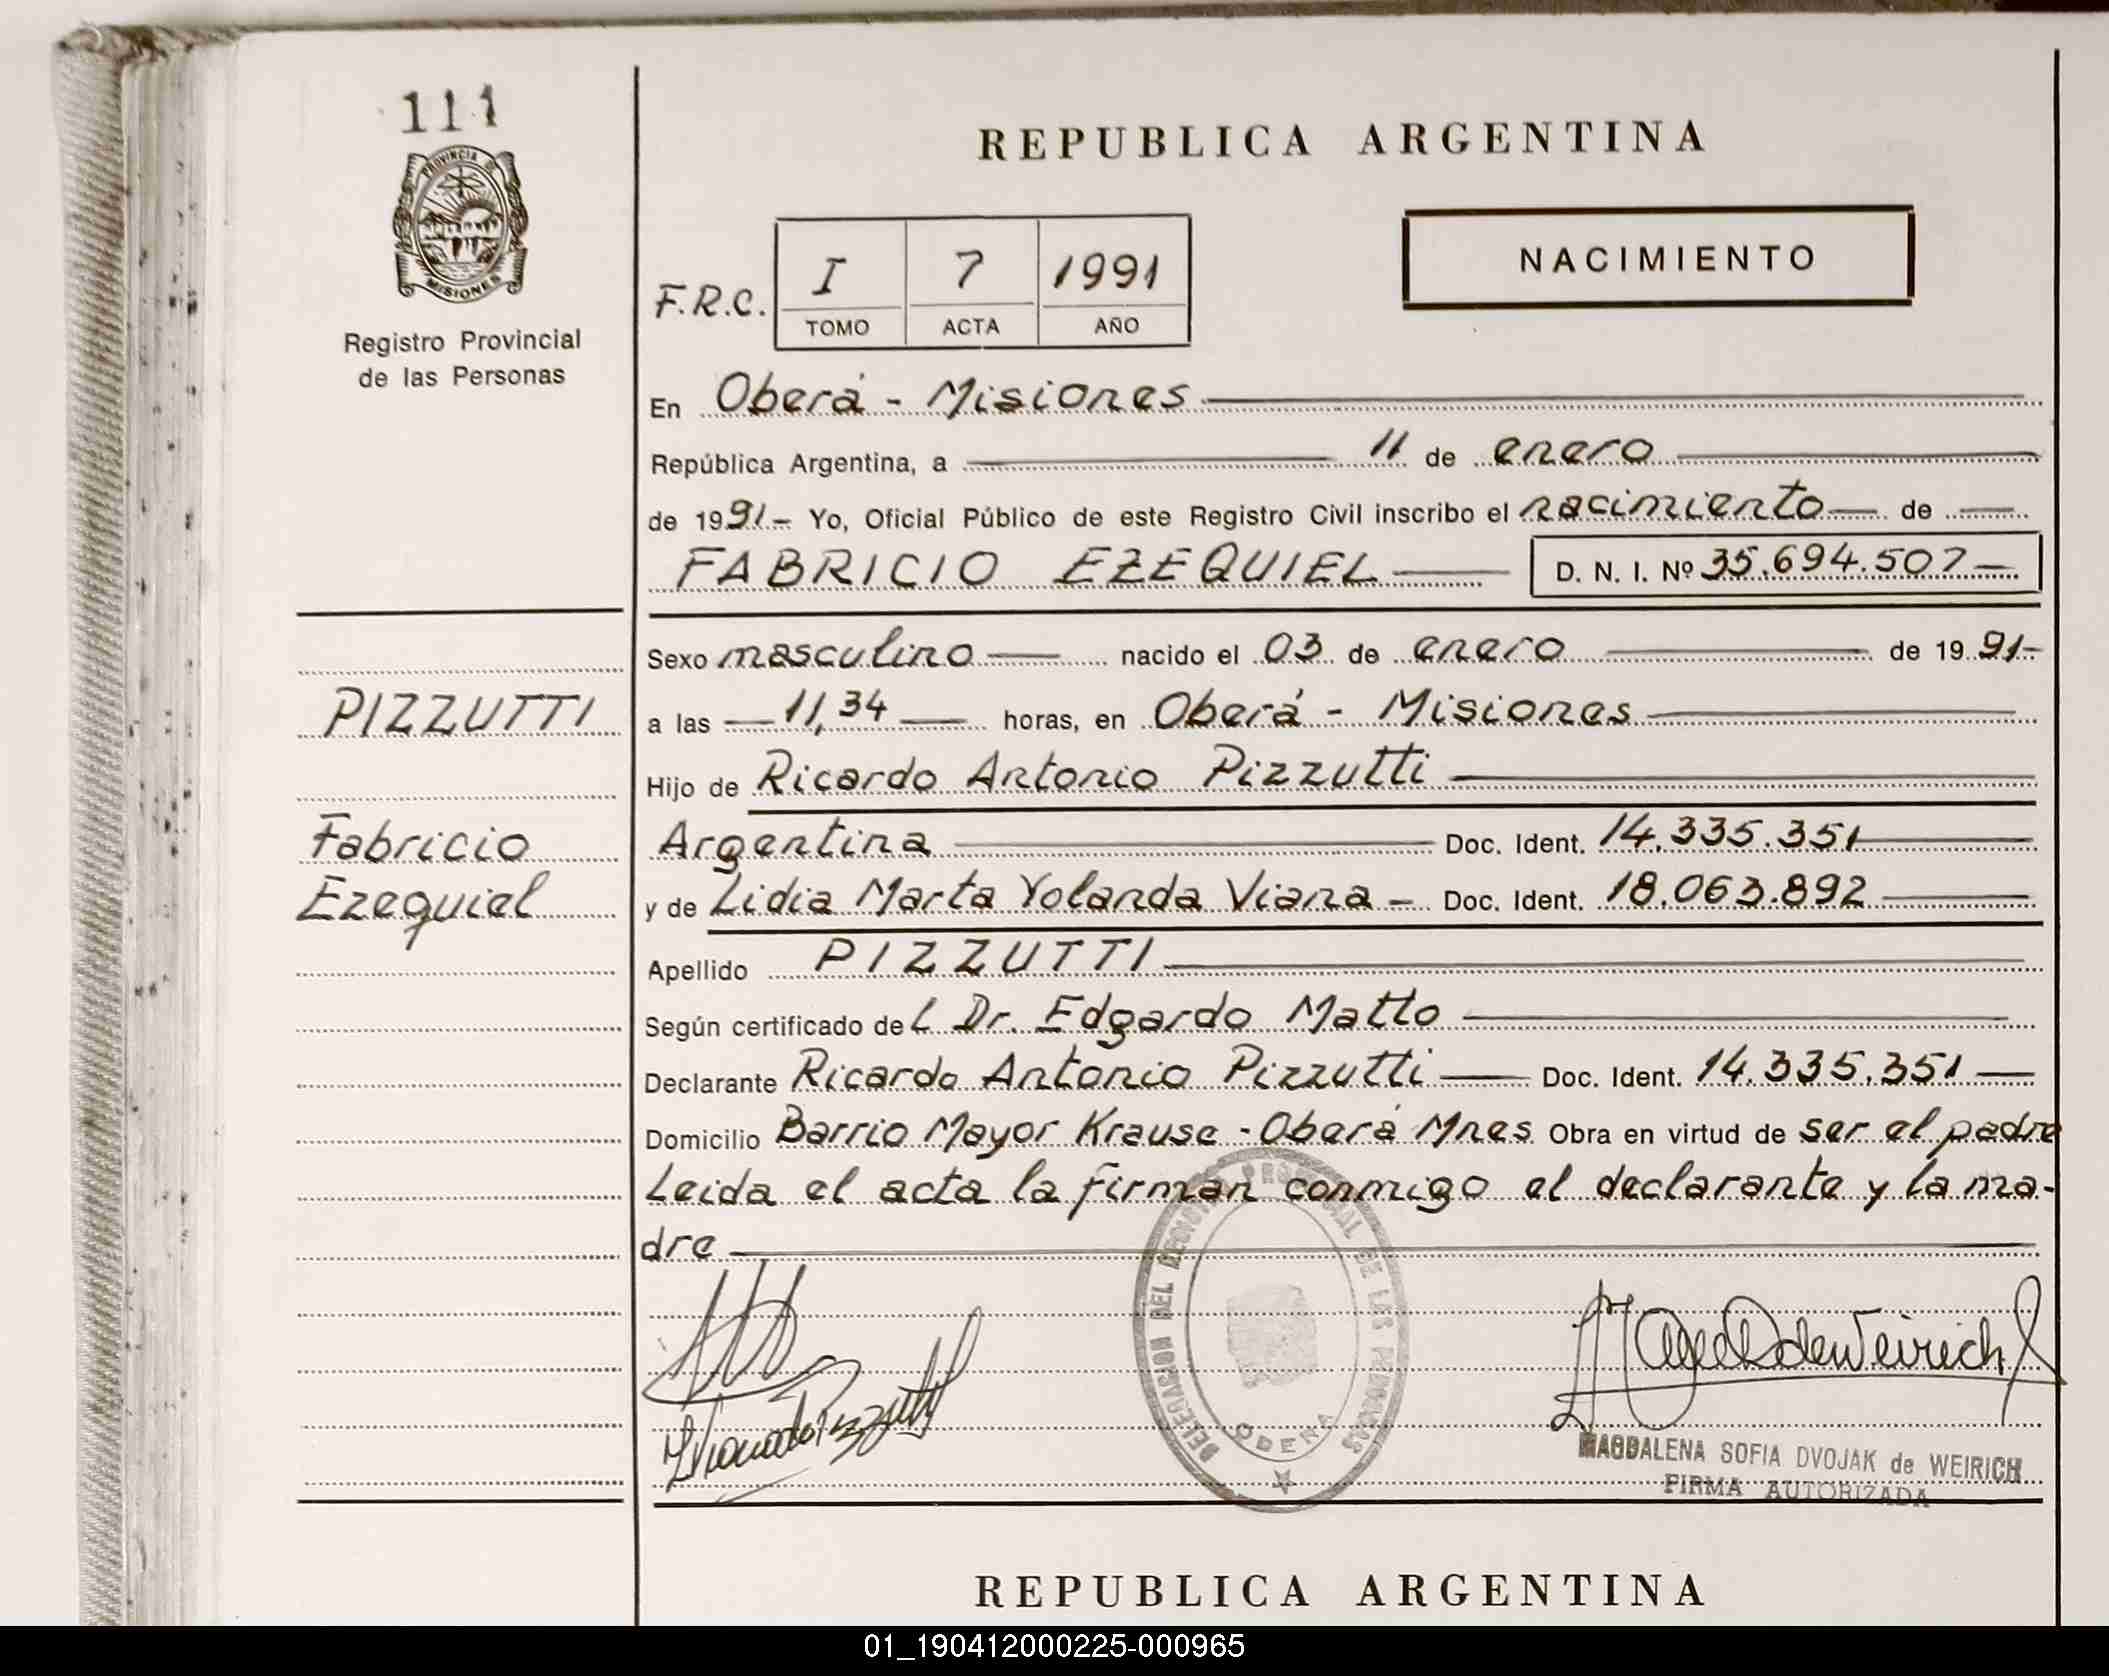 111
PROVINCIA DE
MISIONES
Registro Provincial
de las Personas
REPUBLICA ARGENTINA
NACIMIENTO
F.R.C. I 7 1991
TOMO ACTA AÑO
En Oberá - Misiones
República Argentina, a 11 de enero
de 1991- Yo, Oficial Público de este Registro Civil inscribo el nacimiento de
FABRICIO EZEQUIEL D. N. I. Nº 35.694.507
Sexo masculino nacido el 03 de enero de 1991-
PIZZUTTI
a las 11,34 horas, en Oberá - Misiones
Hijo de Ricardo Antonio Pizzutti
Fabricio
Argentina Doc. Ident. 14.335.351
Ezequiel
y de Lidia Marta Yolanda Viana - Doc. Ident. 18.063.892
Apellido PIZZUTTI
Según certificado del Dr. Edgardo Matto
Declarante Ricardo Antonio Pizzutti Doc. Ident. 14.335.351
Domicilio Barrio Mayor Krause - Oberá Mnes Obra en virtud de ser el padre
Leida el acta la firman conmigo el declarante y la ma-
dre
DELEGACION DEL REGISTRO PROVINCIAL DE LAS PERSONAS
OBERA
MAGDALENA SOFIA DVOJAK de WEIRICH
FIRMA AUTORIZADA
REPUBLICA ARGENTINA
01_190412000225-000965